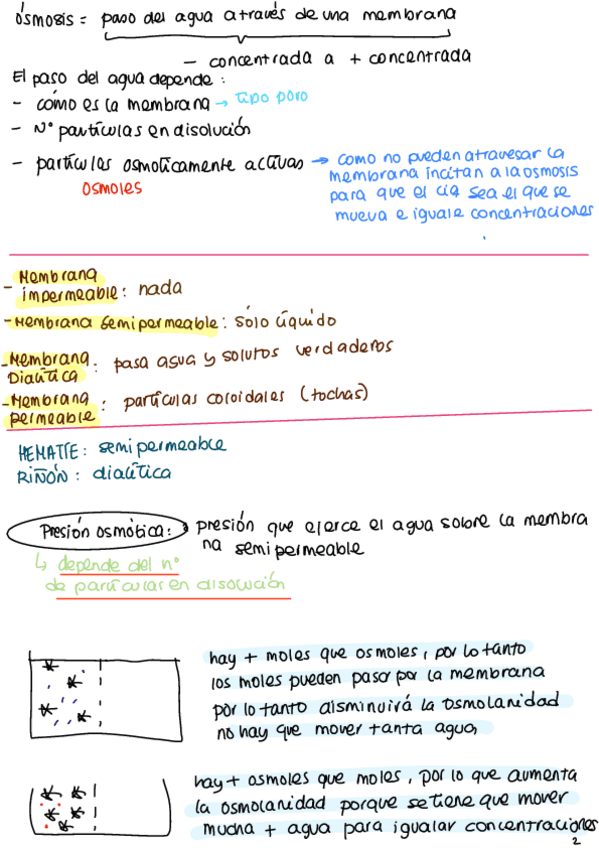 ósmosis = paso del agua através de una membrana
- concentrada a + concentrada
El paso del agua depende:
- cómo es la membrana → tipo poro
- Nº partículas en disolución
- partículas osmóticamente activas → como no pueden atravesar la
osmoles
membrana incitan a la osmosis
para que el liq sea el que se
mueva e iguale concentraciones
- Membrana
impermeable: nada
- Membrana semipermeable: sólo líquido
- Membrana
Dialítica: pasa agua y solutos verdaderos
- Membrana
permeable: partículas coloidales (tochas)
HEMATÍE: semipermeable
RIÑÓN: dialítica
Presión osmótica: presión que ejerce el agua sobre la membra
na semipermeable
↳ depende del nº
de partículas en disolución
hay + moles que osmoles, por lo tanto
los moles pueden pasar por la membrana
por lo tanto disminuirá la osmolaridad
no hay que mover tanta agua,
hay + osmoles que moles, por lo que aumenta
la osmolaridad porque se tiene que mover
mucha + agua para igualar concentraciones
2